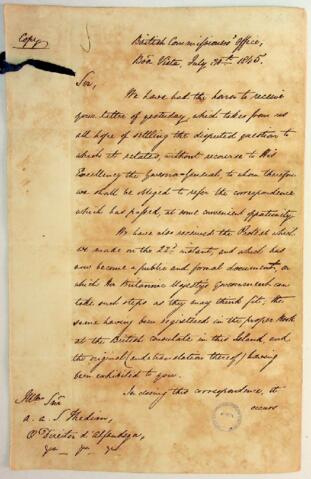 Copy
British Commissioners' Office,
Bôa Vista, July 30th 1845.
Sir,
We have had the honor to receive
your letter of yesterday, which takes from us
all hope of settling the disputed question to
which it relates, without recourse to His
Excellency the Governor-General, to whom therefore
we shall be obliged to refer the correspondence
which has passed, at some convenient opportunity.
We have also received the Protest which
we made on the 22d instant, and which has
now become a public and formal document, on
which Her Britannic Majesty's Government can
take such steps as they may think fit, the
same having been registered in the proper Book
at the British Consulate in this Island, and
the original (and translation thereof) having
been exhibited to you.
In closing this correspondence, it
occurs
Illmo Snr
a. a. S
O Director d'Alfandega,